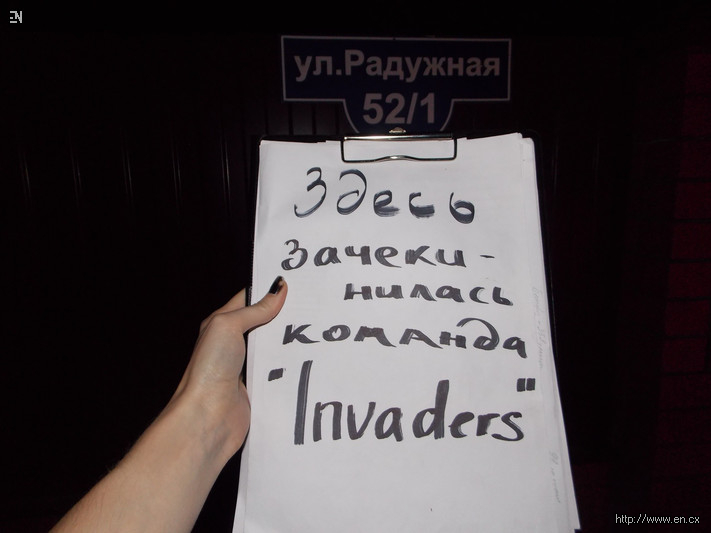 EN
ул.Радужная
52/1
Здесь
зачеки-
нилась
команда
"Invaders"
http://www.en.cx